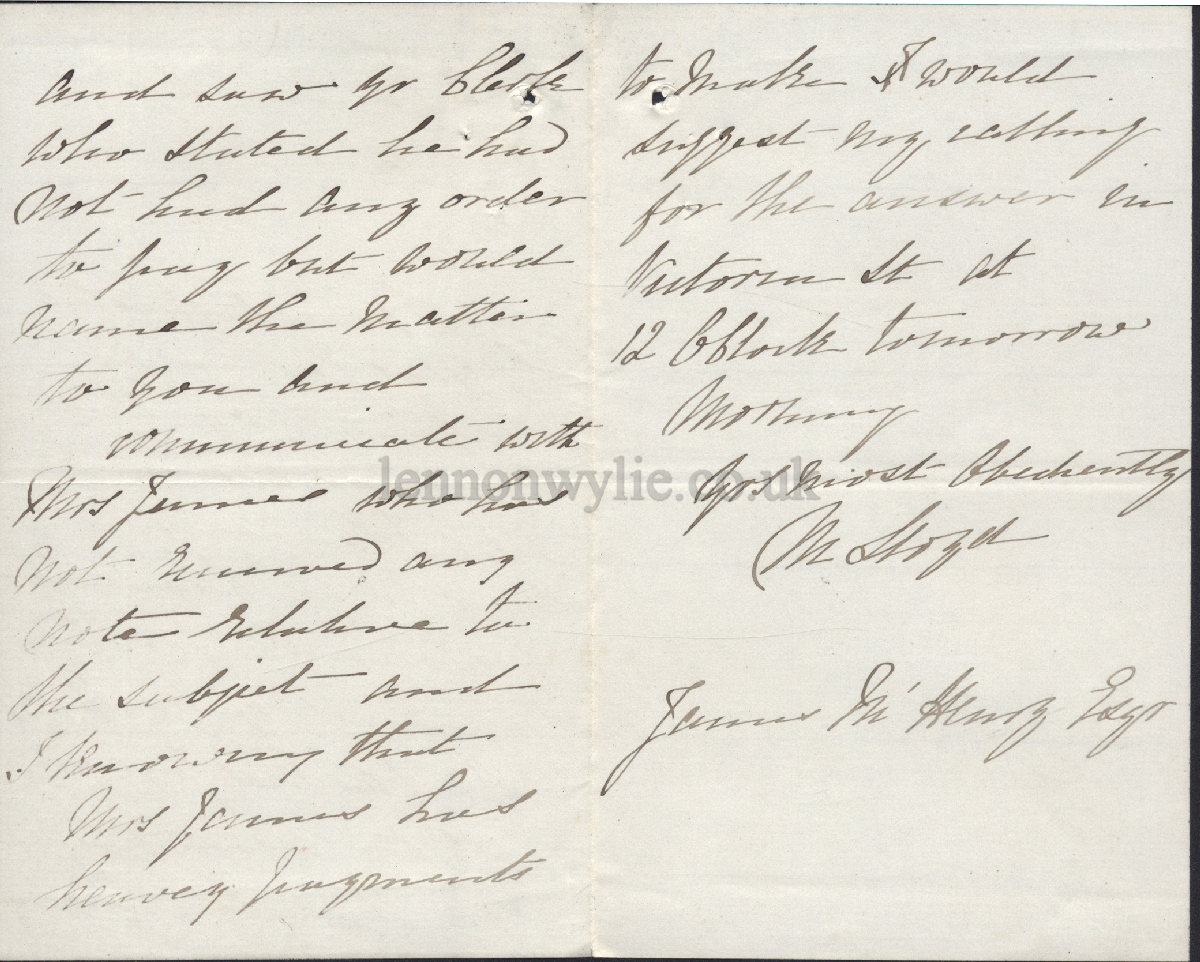 and saw yr Clerk
who stated he had
not had any order
to pay but would
name the matter
to you and
communicate with
Mrs James who has
not received any
note relative to
the subject and
I knowing that
Mrs James has
heavey payments
to make I would
suggest my calling
for the answer in
Victoria St at
12 OClock tomorrow
Morning
Yrs most Obediently
M Lloyd
James Mc Henry Esqr
lennonwylie.co.uk